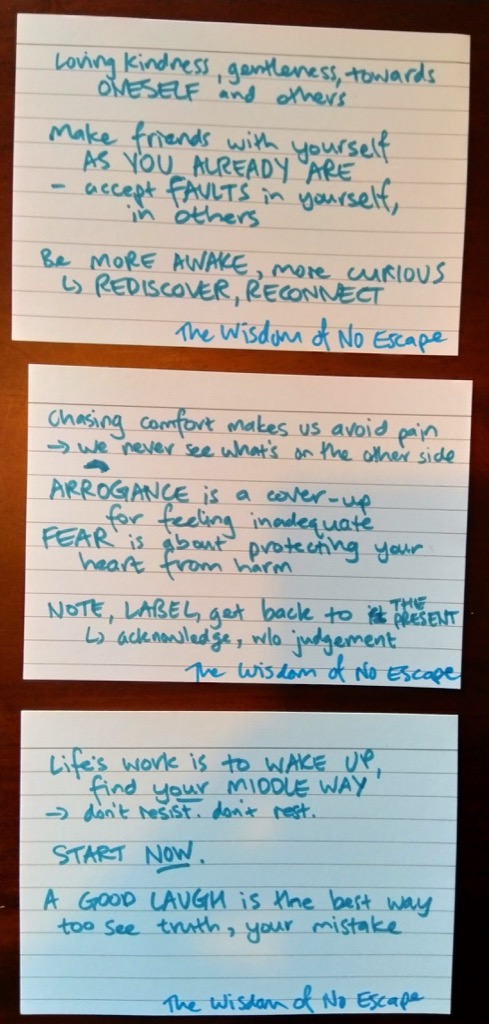 Loving kindness, gentleness, towards
ONESELF and others
Make friends with yourself
AS YOU ALREADY ARE
- accept FAULTS in yourself,
in others
Be MORE AWAKE, more CURIOUS
↳ REDISCOVER, RECONNECT
The Wisdom of No Escape
Chasing comfort makes us avoid pain
→ we never see what's on the other side
ARROGANCE is a cover-up
for feeling inadequate
FEAR is about protecting your
heart from harm
NOTE, LABEL, get back to THE
PRESENT
↳ acknowledge, w/o judgement
The Wisdom of No Escape
Life's work is to WAKE UP,
find your MIDDLE WAY
→ don't resist. don't rest.
START NOW.
A GOOD LAUGH is the best way
too see truth, your mistake
The Wisdom of No Escape